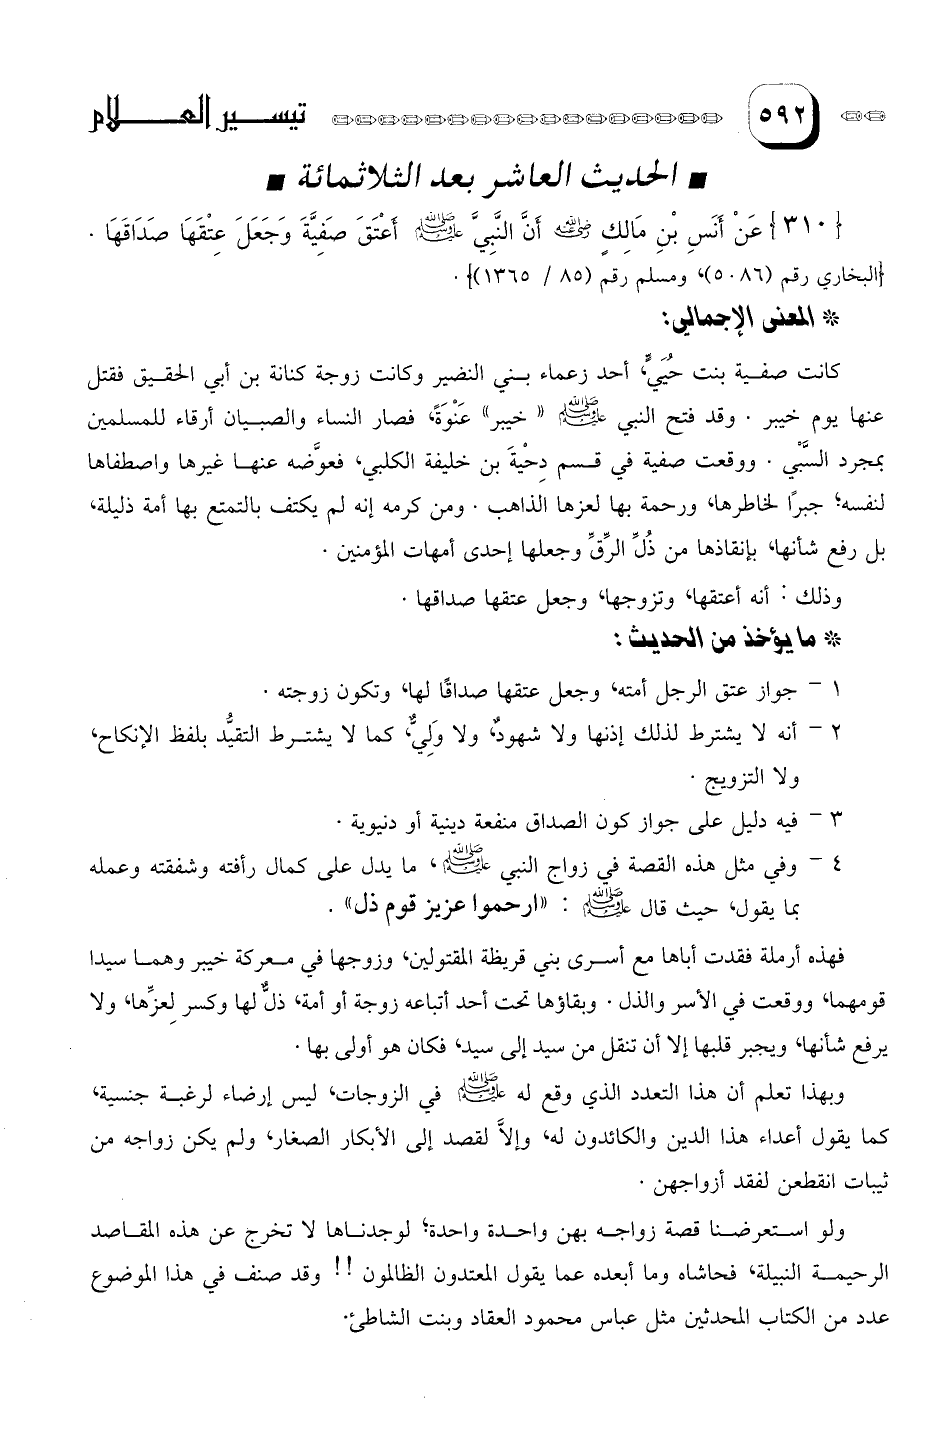 ٥٩٢ تيسير العلام
■ الحديث العاشر بعد الثلاثمائة ■
{٣١٠} عَنْ أَنَسِ بْنِ مَالِكٍ رضي الله عنه أَنَّ النَّبِيَّ ﷺ أَعْتَقَ صَفِيَّةَ وَجَعَلَ عِتْقَهَا صَدَاقَهَا .
{البخاري رقم (٥٠٨٦)، ومسلم رقم (٨٥ / ١٣٦٥)} .
* المعنى الإجمالي:
كانت صفية بنت حُيَيٍّ، أحد زعماء بني النضير وكانت زوجة كنانة بن أبي الحقيق فقتل
عنها يوم خيبر . وقد فتح النبي ﷺ « خيبر» عَنْوَةً، فصار النساء والصبيان أرقاء للمسلمين
بمجرد السَّبْي . ووقعت صفية في قسم دِحْيَةَ بن خليفة الكلبي، فعوَّضه عنها غيرها واصطفاها
لنفسه؛ جبرًا لخاطرها، ورحمة بها لعزها الذاهب . ومن كرمه إنه لم يكتف بالتمتع بها أمة ذليلة،
بل رفع شأنها، بإنقاذها من ذُلِّ الرِّقِّ وجعلها إحدى أمهات المؤمنين .
وذلك : أنه أعتقها، وتزوجها، وجعل عتقها صداقها .
* ما يؤخذ من الحديث :
١ – جواز عتق الرجل أمته، وجعل عتقها صداقًا لها، وتكون زوجته .
٢ – أنه لا يشترط لذلك إذنها ولا شهودٌ، ولا وَلِيٌّ، كما لا يشترط التقيُّد بلفظ الإنكاح،
ولا التزويج .
٣ – فيه دليل على جواز كون الصداق منفعة دينية أو دنيوية .
٤ – وفي مثل هذه القصة في زواج النبي ﷺ، ما يدل على كمال رأفته وشفقته وعمله
بما يقول، حيث قال ﷺ : «ارحموا عزيز قوم ذل» .
فهذه أرملة فقدت أباها مع أسرى بني قريظة المقتولين، وزوجها في معركة خيبر وهما سيدا
قومهما، ووقعت في الأسر والذل . وبقاؤها تحت أحد أتباعه زوجة أو أمة، ذلٌّ لها وكسر لعزِّها، ولا
يرفع شأنها، ويجبر قلبها إلا أن تنقل من سيد إلى سيد، فكان هو أولى بها .
وبهذا تعلم أن هذا التعدد الذي وقع له ﷺ في الزوجات، ليس إرضاء لرغبة جنسية،
كما يقول أعداء هذا الدين والكائدون له، وإلاَّ لقصد إلى الأبكار الصغار، ولم يكن زواجه من
ثيبات انقطعن لفقد أزواجهن .
ولو استعرضنا قصة زواجه بهن واحدة واحدة؛ لوجدناها لا تخرج عن هذه المقاصد
الرحيمة النبيلة، فحاشاه وما أبعده عما يقول المعتدون الظالمون !! وقد صنف في هذا الموضوع
عدد من الكتاب المحدثين مثل عباس محمود العقاد وبنت الشاطئ.